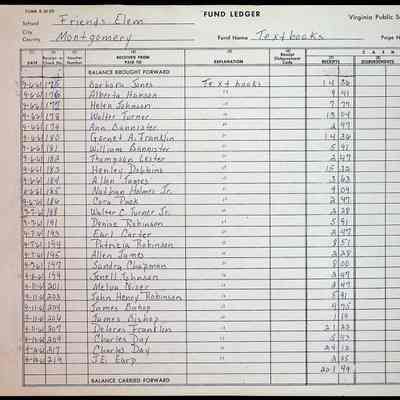 FORM
FUND LEDGER
Virginia Public S
School Friends Elem.
City
County Montgomery
Fund Name Textbooks
Page N
DATE Receipt or Check No. Voucher Number RECEIVED FROM PAID TO EXPLANATION Receipt Disbursement Code RECEIPTS DISBURSEMENTS
BALANCE BROUGHT FORWARD
175 Barbara Jones Textbooks 14 36
9-6-61 176 Alberta Hanson " 9 41
9-6-61 177 Helen Johnson " 7 77
9-6-61 178 Walter Turner " 13 04
9-6-61 179 Ann Bannister " 2 47
9-6-61 180 Garnet A. Franklin " 14 36
9-6-61 181 William Bannister " 5 91
9-6-61 182 Thompson Lester " 2 47
9-6-61 183 Henley Dobbins " 15 32
9-6-61 184 Allen James " 3 63
9-6-61 185 Nathan Holmes Jr. " 9 09
9-6-61 186 Cora Pack " 2 97
9-7-61 188 Walter C. Turner Jr. " 2 28
9-7-61 191 Denise Robinson " 5 91
9-7-61 193 Earl Carter " 2 47
9-7-61 194 Patricia Robinson " 8 51
9-7-61 195 Allen James " 2 28
9-7-61 197 Sandra Chapman " 8 00
9-8-61 199 Jonell Johnson " 2 47
9-11-61 201 Melva Niser " 2 47
9-11-61 203 John Henry Robinson " 5 91
9-11-61 204 James Bishop " 4 75
9-11-61 206 James Bishop " 1 19
9-11-61 207 Delores Franklin " 21 22
9-11-61 209 Charles Day " 5 47
9-12-61 217 Charles Day " 24 12
219 J.E. Earp " 2 25
201 49
BALANCE CARRIED FORWARD